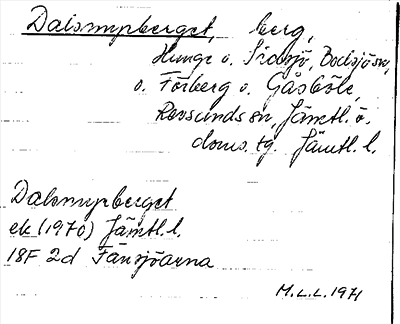 Dalsmyrberget, berg,
Hunge o. Sidsjö, Bodsjö sn,
o. Förberg o. Gåsböle,
Revsunds sn, Jämtl. ö.
doms. tg. Jämtl. l.
Dalsmyrberget
ek (1970) Jämtl. l.
18F 2d Tansjöarna
M.L.L. 1971